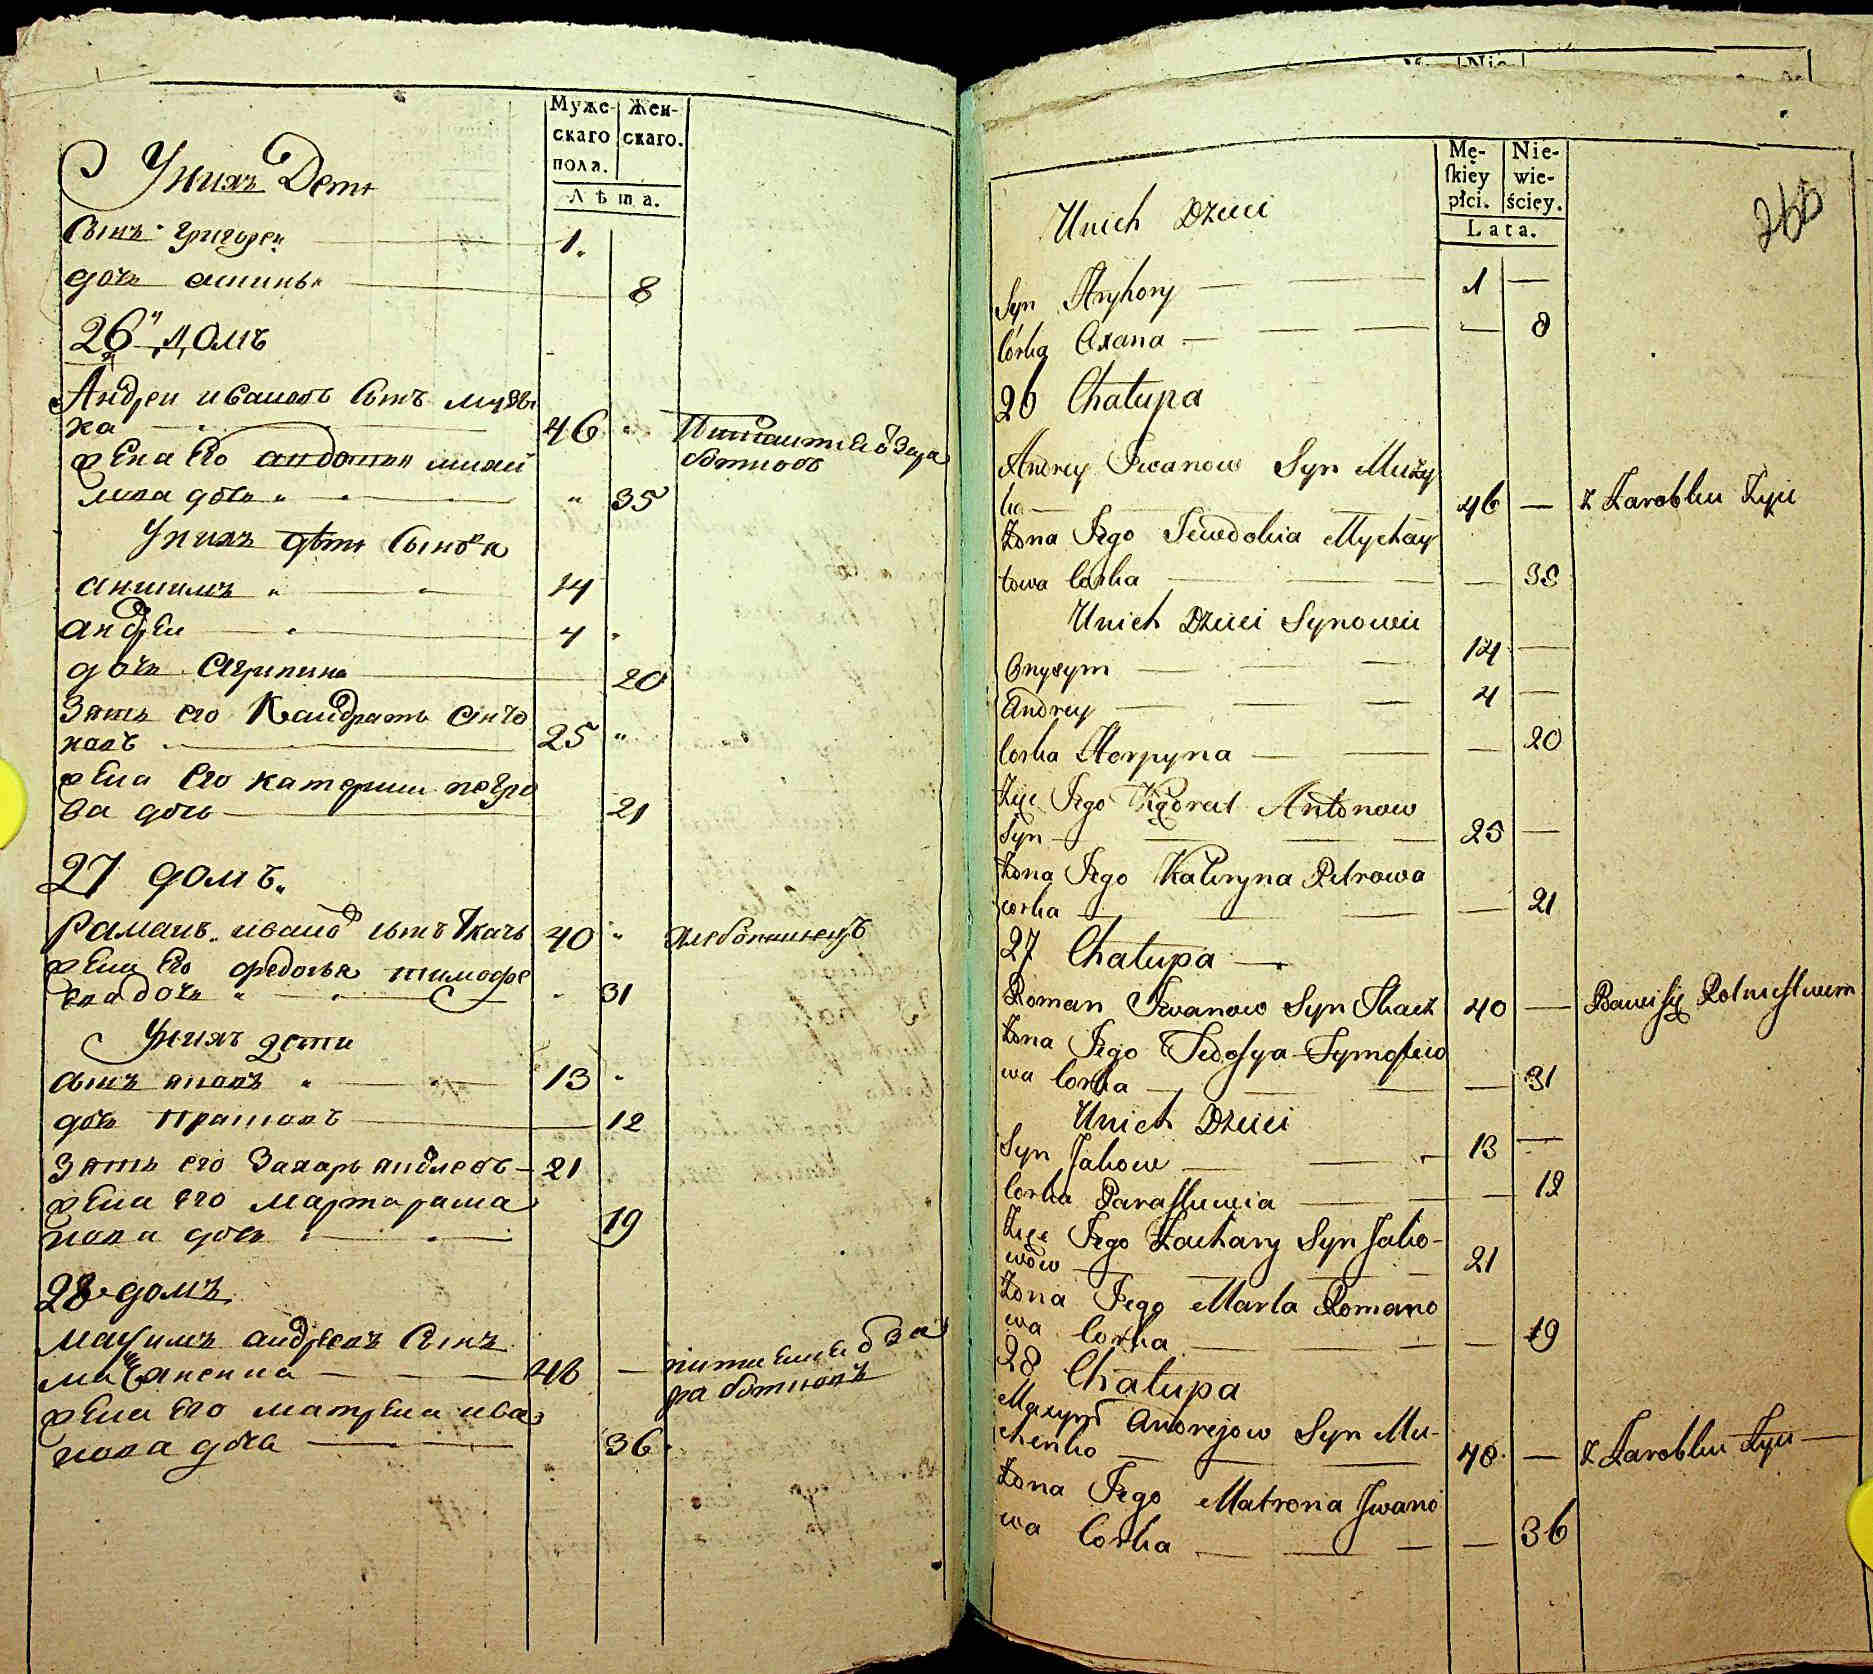 Муже-
скаго
пола.
Жен-
скаго.
Лѣта.
У нихъ Дети
Сынъ Григореи 1.
дочь 8
26 Домъ
Андреи Ивановъ Сынъ Мужы
ка 46
жена Его михаи
лова дочь 35
У нихъ дѣти Сынов
анисимъ 14
андреи 4
дочь Агрипина 20
Зять его Кандратъ Анто
новъ 25
жена Его катерина петро
ва дочь 21
27 домъ.
Раманъ ивановъ сынъ Ткачъ 40
жена Его федосья тимофе
ева дочь 31
У нихъ дети
сынъ яковъ 13
дочь 12
Зять его Захаръ яковлевъ 21
жена его марта рама
нова дочь 19
28 домъ
Максимъ андреевъ Сынъ
48
жена Его матрена ива
нова дочь 36
Mę-
skiey
płci.
Nie-
wie-
ściey.
Lata.
266
Unich Dzieci
Syn Hryhory — 1 —
Córka Oxana — — 8
26 Chałupa
Andrey Iwanow Syn MużY
ka — 46 — z Zarobku Żyie
Żona Jego Iewdokia Mychay
łowa Corka — — 35
Unich Dzieci Synowie
Onysym — 14 —
Andrey — 4 —
Corka Horpyna — — 20
Zięć Jego Kądrat Antonow
Syn — 25 —
Żona Jego Kateryna Petrowa
corka — — 21
27 Chałupa —
Roman Iwanow Syn Tkacz 40 — Bawi się Rolnictwem
Żona Jego Fedosya Tymofiejo
wa Corka — — 31
Unich Dzieci
Syn Jakow — 13 —
Corka Paraskiewia — — 12
Zięć Jego Zachary Syn Jako-
wów — 21
Żona Jego Marta Romano
wa Corka — — 19
28 Chałupa
Maxym Andrejow Syn
48 — z Zarobku Żyie —
Żona Jego Matrona Iwano
wa Corka — — 36